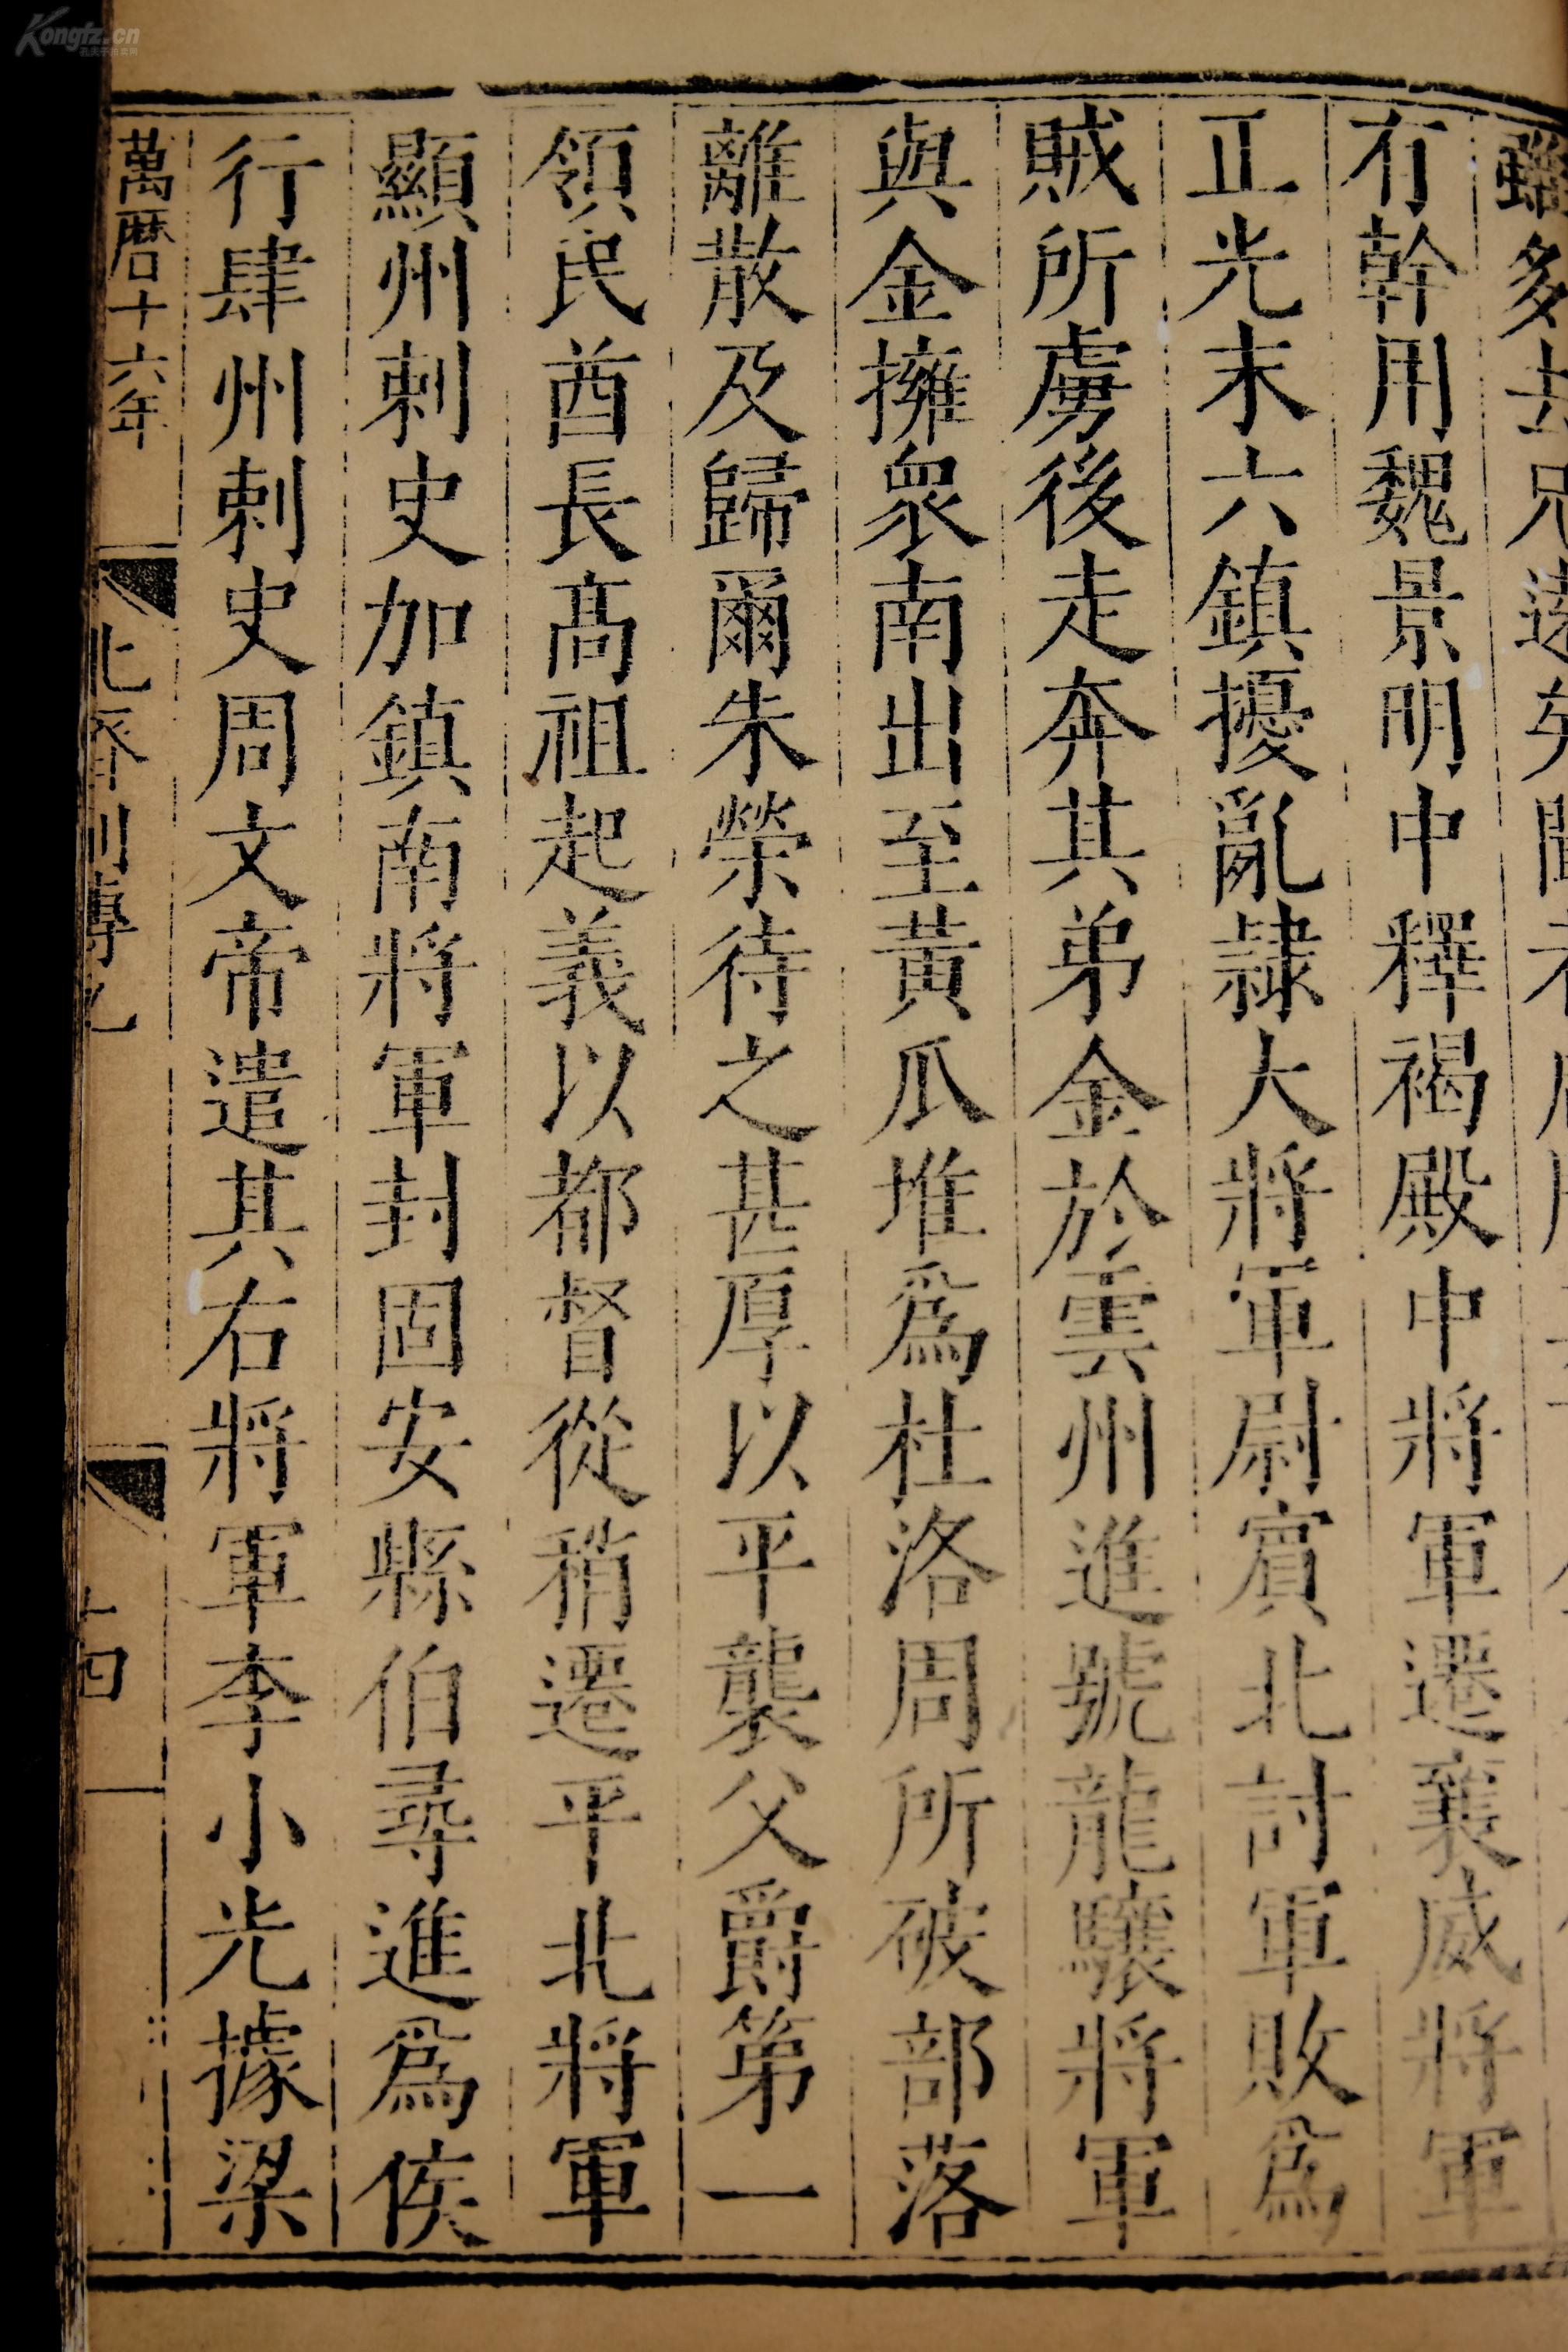 雖多去兄遠矣聞者
有幹用魏景明中釋褐殿中將軍遷襄威將軍
正光末六鎮擾亂隷大將軍尉賓北討軍敗爲
賊所虜後走奔其弟金於雲州進號龍驤將軍
與金擁衆南出至黃瓜堆爲杜洛周所破部落
離散及歸爾朱榮待之甚厚以平襲父爵第一
領民酋長高祖起義以都督從稍遷平北將軍
顯州刺史加鎮南將軍封固安縣伯尋進爲侯
行肆州刺史周文帝遣其右將軍李小光據梁
萬曆十六年
北齊列傳九
十四
Kongfz.cn